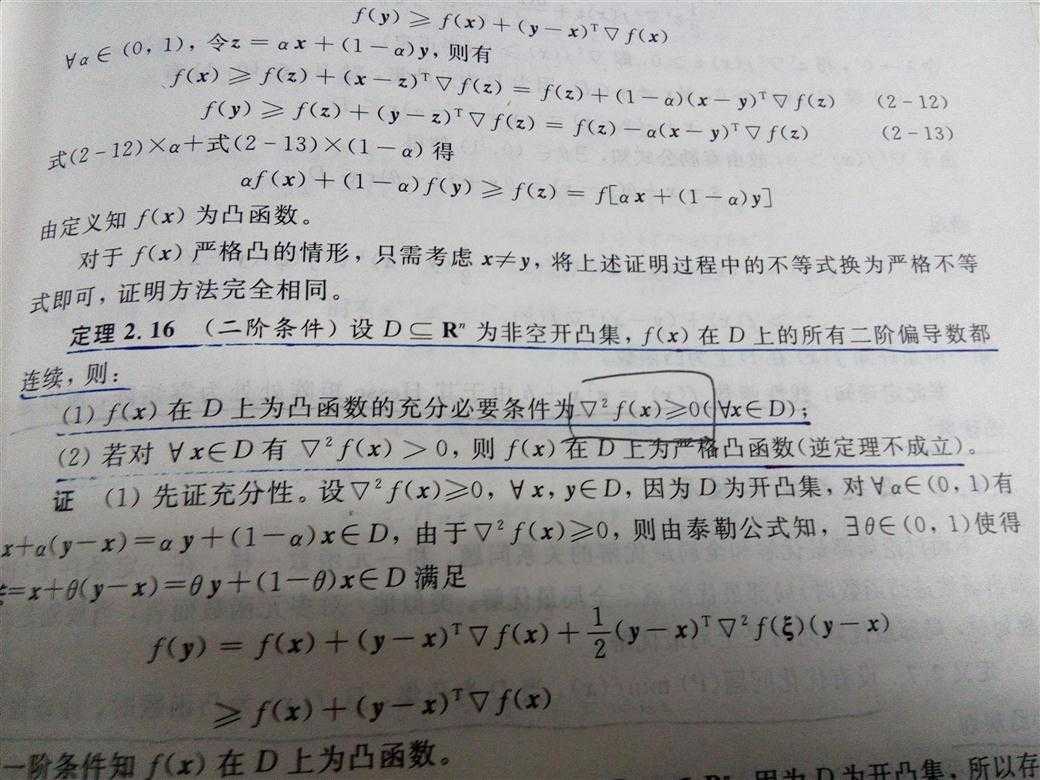 f(y) ⩾ f(x) + (y − x)ᵀ∇f(x)
∀α ∈ (0, 1), 令z = αx + (1 − α)y, 则有
f(x) ⩾ f(z) + (x − z)ᵀ∇f(z) = f(z) + (1 − α)(x − y)ᵀ∇f(z) (2-12)
f(y) ⩾ f(z) + (y − z)ᵀ∇f(z) = f(z) − α(x − y)ᵀ∇f(z) (2-13)
式(2-12)×α+式(2-13)×(1−α) 得
αf(x) + (1 − α)f(y) ⩾ f(z) = f[αx + (1 − α)y]
由定义知 f(x) 为凸函数。
对于 f(x) 严格凸的情形,只需考虑 x≠y,将上述证明过程中的不等式换为严格不等
式即可,证明方法完全相同。
定理 2.16 (二阶条件) 设 D⊆Rⁿ 为非空开凸集, f(x) 在 D 上的所有二阶偏导数都
连续,则:
(1) f(x) 在 D 上为凸函数的充分必要条件为∇²f(x)⩾0(∀x∈D);
(2) 若对 ∀x∈D 有 ∇²f(x) > 0,则 f(x) 在 D 上为严格凸函数(逆定理不成立)。
证 (1) 先证充分性。设∇²f(x)⩾0, ∀x, y∈D,因为 D 为开凸集,对∀α∈(0, 1)有
x+α(y−x)=αy+(1−α)x∈D,由于∇²f(x)⩾0,则由泰勒公式知,∃θ∈(0, 1)使得
ξ=x+θ(y−x)=θy+(1−θ)x∈D 满足
f(y) = f(x) + (y − x)ᵀ∇f(x) + ½(y − x)ᵀ∇²f(ξ)(y − x)
⩾ f(x) + (y − x)ᵀ∇f(x)
一阶条件知 f(x) 在 D 上为凸函数。
因为 D 为开凸集,所以存